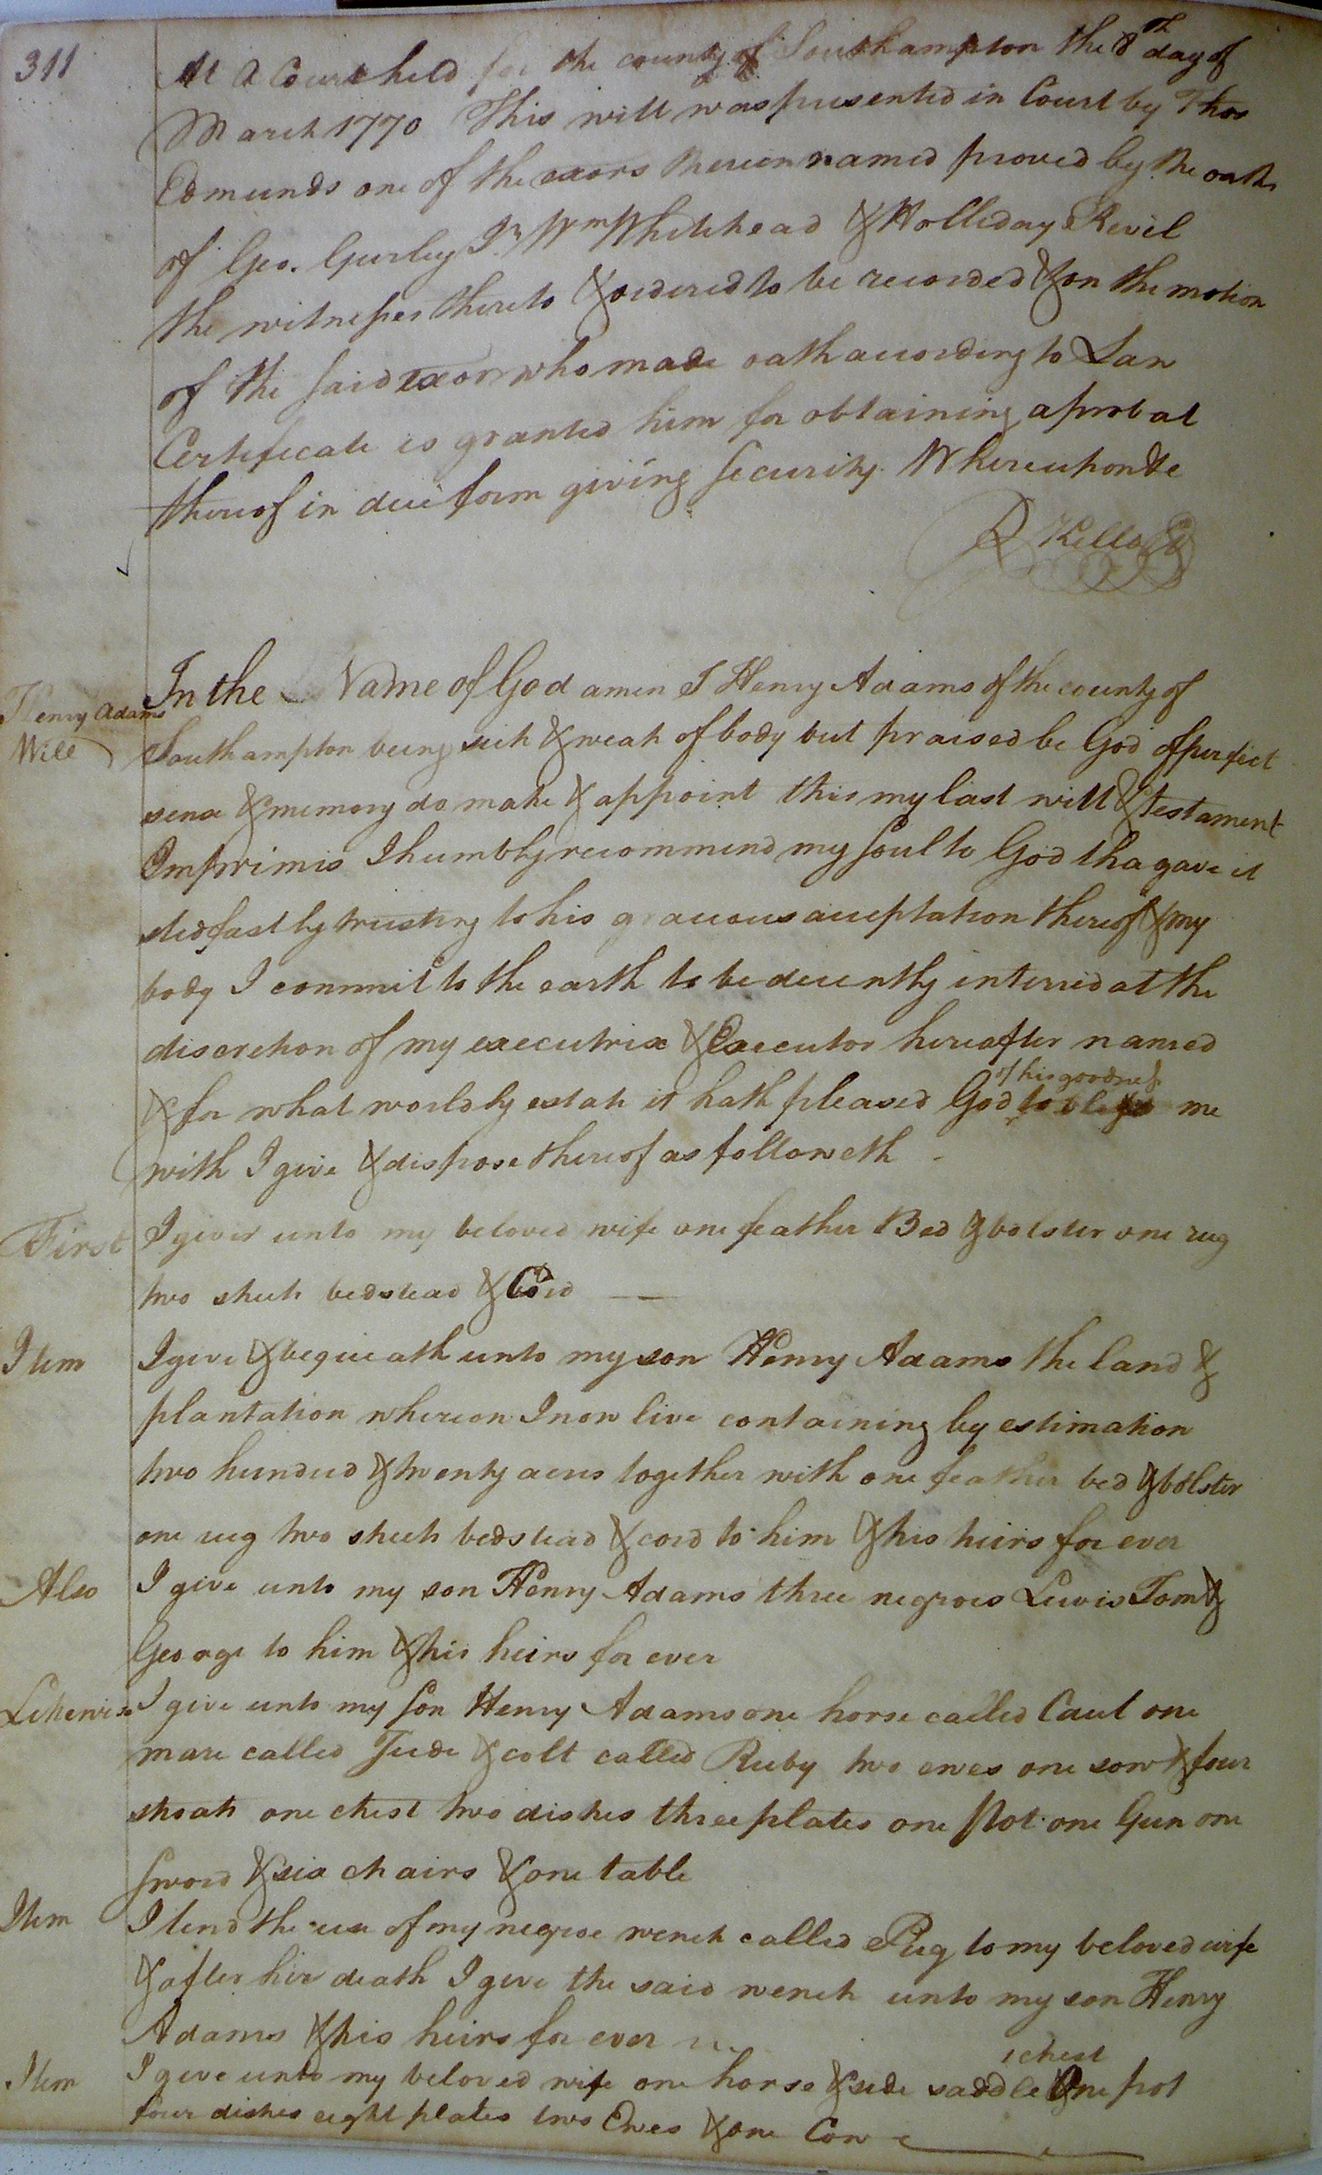 311
At a Court held for the county of Southampton the 8th day of
March 1770 This will was presented in Court by Thos
Edmunds one of the exors therein named proved by the oaths
of Geo. Gurley Jr. Wm Whitehead & Holliday Revel
the witnesses thereto & ordered to be recorded & on the motion
of the said exor who made oath according to Law
Certificate is granted him for obtaining a probat
thereof in due form giving security. Whereupon &c
R Kello
Henry Adams
Will
In the Name of God amen I Henry Adams of the county of
Southampton being sick & weak of body but praised be God of perfect
sence & memory do make & appoint this my last will & testament
Imprimis I humbly recommend my soul to God tha gave it
stedfastly trusting to his gracious acceptation thereof & my
body I commit to the earth to be decently interred at the
discretion of my executrix & Executor hereafter named
of his goodness
& for what worldly estate it hath pleased God to bless me
with I give & dispose thereof as followeth -
First I giver unto my beloved wife one feather Bed & bolster one rug
two sheets bedstead & Cord
Item I give & bequeath unto my son Henry Adams the land &
plantation whereon I now live containing by estimation
two hundred & twenty acres together with one feather bed & bolster
one rug two sheets bedstead & cord to him & his heirs for ever
Also I give unto my son Henry Adams three negroes Lewis Tom &
George to him & his heirs for ever
Likewise I give unto my son Henry Adams one horse called Caul one
mare called Jude & colt called Ruby two ewes one sow & four
shoats one chest two dishes three plates one Pot one Gun one
sword & six chairs & one table
Item I lend the use of my negroe wench called Pug to my beloved wife
& after her death I give the said wench unto my son Henry
Adams & his heirs for ever
1 chest
Item I give unto my beloved wife one horse & side saddle One pot
four dishes eight plates two Ewes & one Cow